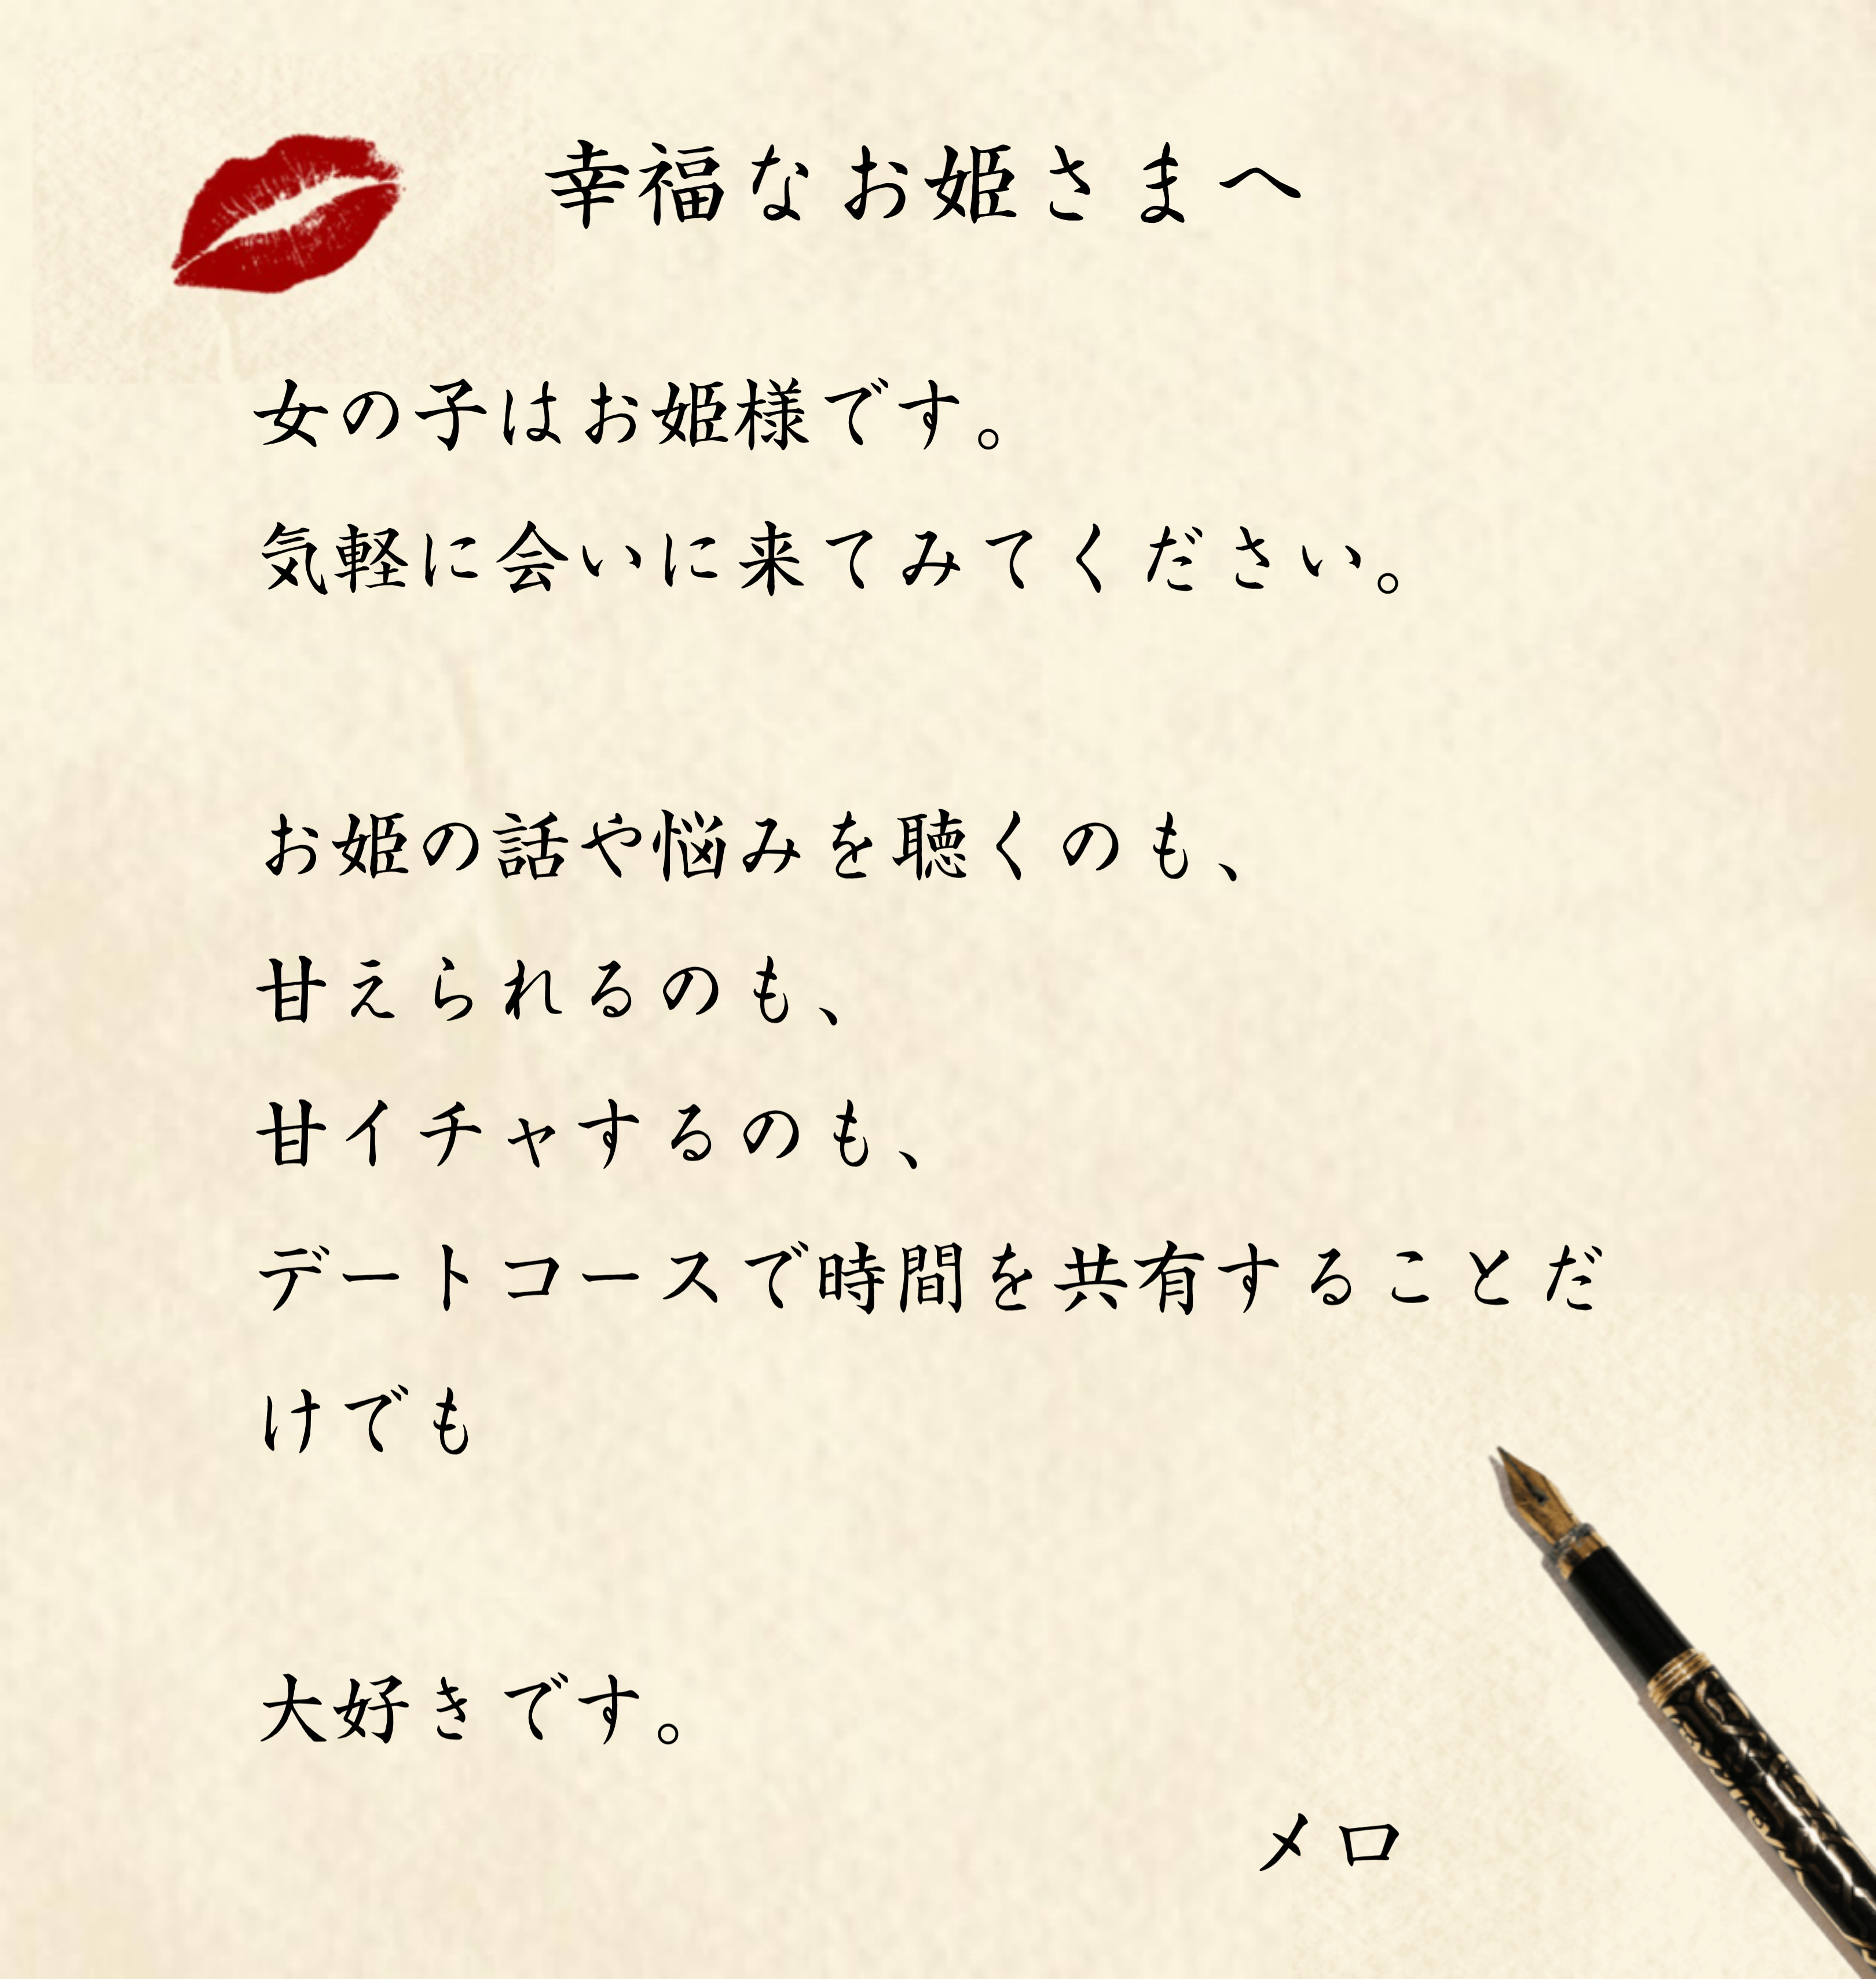 幸福なお姫さまへ
女の子はお姫様です。
気軽に会いに来てみてください。
お姫の話や悩みを聴くのも、
甘えられるのも、
甘イチャするのも、
デートコースで時間を共有することだ
けでも
大好きです。
メロ